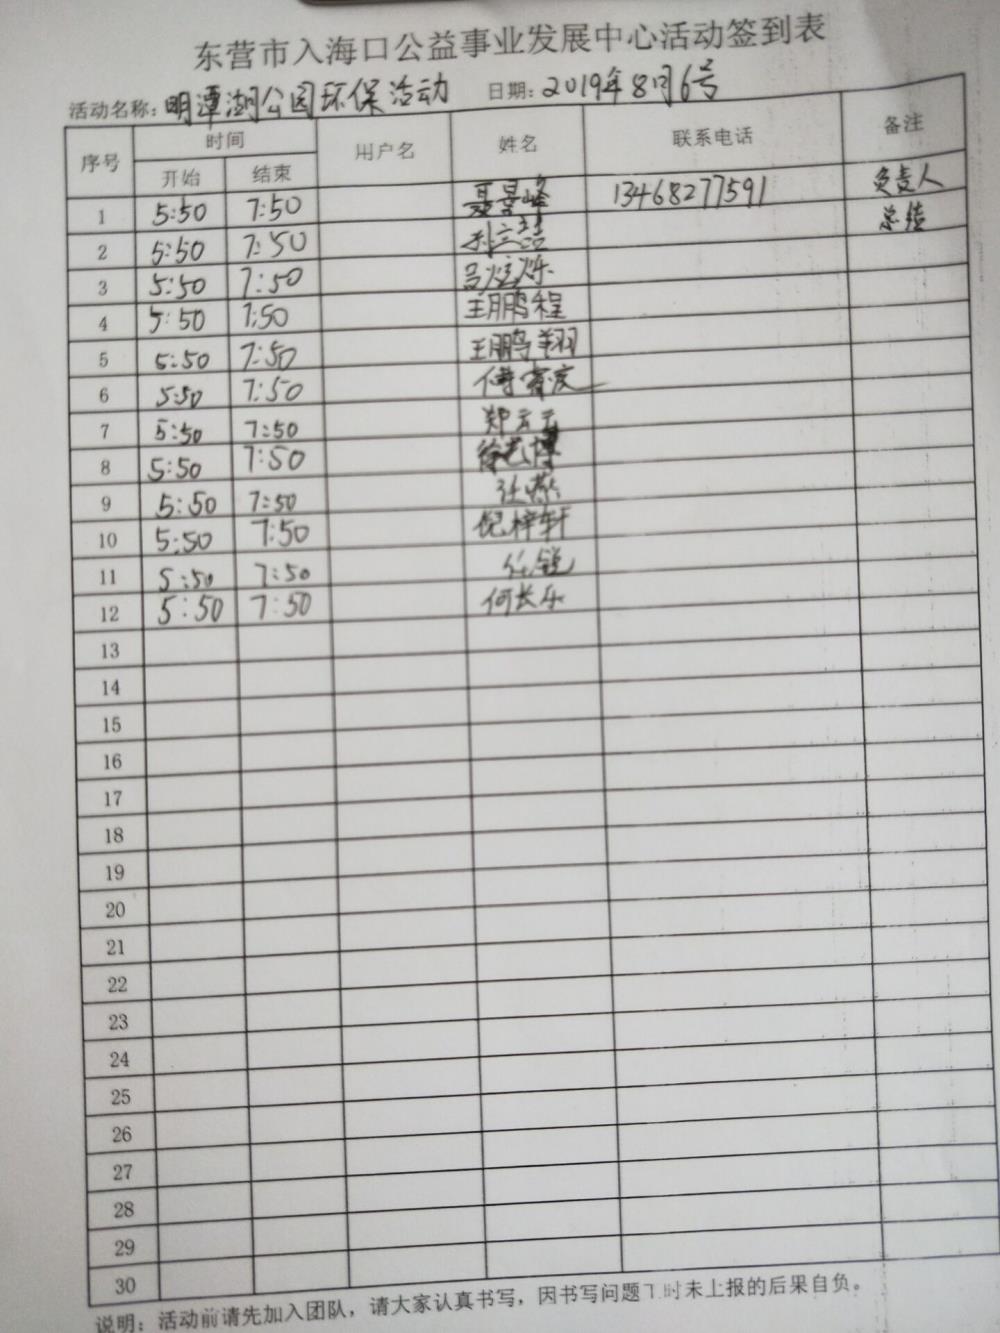 东营市入海口公益事业发展中心活动签到表
活动名称：明潭湖公园环保活动 日期：2019年8月6号
序号 时间 用户名 姓名 联系电话 备注
开始 结束
1 5:50 7:50 聂景峰 13468277591 负责人
2 5:50 7:50 总结
3 5:50 7:50 吕炫烁
4 5:50 7:50 王鹏程
5 5:50 7:50 王鹏翔
6 5:50 7:50
7 5:50 7:50 郑云云
8 5:50 7:50
9 5:50 7:50
10 5:50 7:50 倪梓轩
11 5:50 7:50 任锐
12 5:50 7:50 何长乐
13
14
15
16
17
18
19
20
21
22
23
24
25
26
27
28
29
30
说明：活动前请先加入团队，请大家认真书写，因书写问题 时未上报的后果自负。